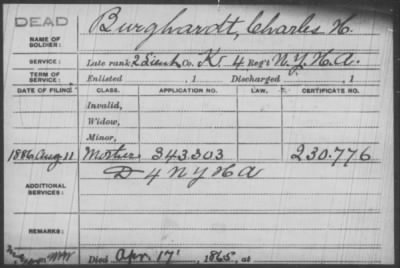 DEAD
NAME OF SOLDIER: Burghardt, Charles H.
SERVICE: Late rank 2 Lieut, Co. K, 4 Reg't N.Y.H.A.
TERM OF SERVICE: Enlisted , 1 Discharged , 1
DATE OF FILING. CLASS. APPLICATION NO. LAW. CERTIFICATE NO.
Invalid,
Widow,
Minor,
1886 Aug 11 Mother 343.303 230.776
ADDITIONAL SERVICES: D 4 N Y H A
REMARKS:
Died Apr. 17, 1865, at